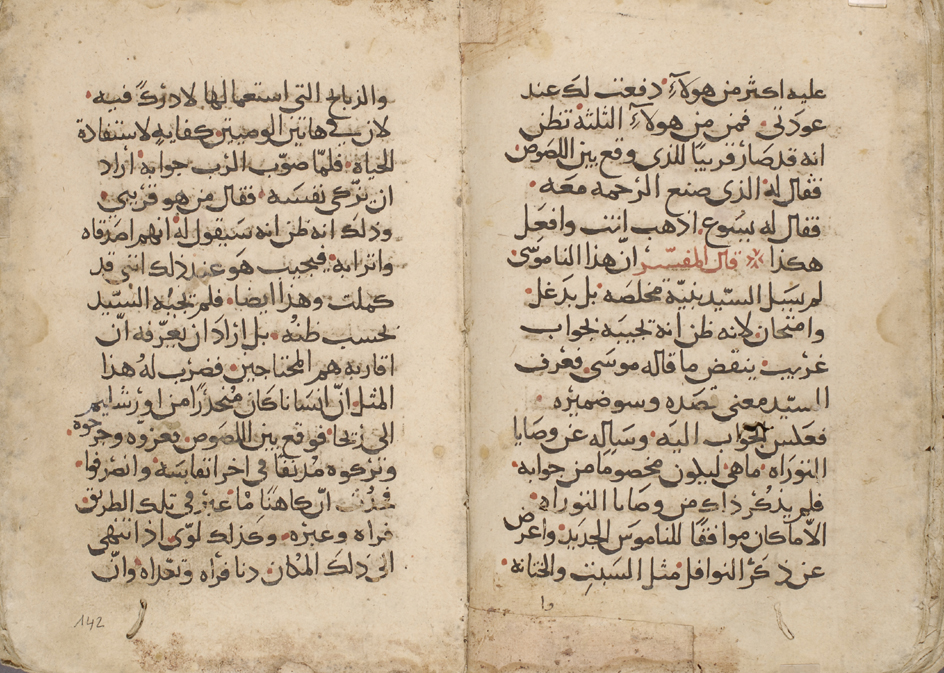 عليه اكثر من هولآءِ دفعت لك عند
عودتي فمن من هولآءِ الثلثة تظن
انه قد صار قريبًا للذي وقع بين اللصوص
فقال له الذي صنع الرحمه معه
فقال له يسوع اذهب انت وافعل
هكذا قال المفسّر انّ هذا الناموسى
لم يسل السيّد بنيّة مخلصه بل بدغل
وامتحان لانه ظن انه يجيبه بجواب
غريب ينقض ما قاله موسى فعرف
السيّد معنى قصده وسو ضميره
فعكس الجواب اليه وسآله عن وصايا
التوراه ماهي ليكون مخصومًا من جوابه
فلم يذكر ذاك من وصايا التوراه
الاّ ماكان موافقًا للناموس الجديد واعرض
عن ذكر النوافل مثل السبت والختانه
والذبايح التي استعمالها لا درك فيه
لاريب في هاتين الوصيتين كفايه لاستفادة
الحياه فلمّا صوّب الرب جوابه اراد
ان يزكى نفسه فقال من هو قريبي
وذلك انه ظن انه سيقول له انهم اصدقاه
واترابه فيجيب هو عند ذلك انني قد
كملت وهذا ايضا فلم يجبه السيّد
بحسب ظنه بل اراد ان يعرّفه انّ
اقاربه هم المحتاجين فضرب له هذا
المثل انّ انسانا كان منحدرًا من اورشليم
الى ريحا فوقع بين اللصوص فعروه وجرحوه
وتركوه مدنفًا في اخر انفاسه وانصرفوا
فحدث انّ كاهنًا مّا عبر في تلك الطريق
فراه وعبره وكذلك لوّى اذ انتهى
الى ذلك المكان دنا فرأه وتعداه وانّ
142